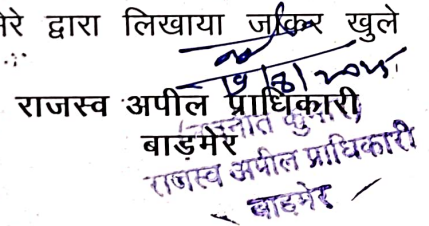 मेरे द्वारा लिखाया जाकर खुले
राजस्व अपील प्राधिकारी
बाड़मेर
राजस्व अपील प्राधिकारी
बाडमेर